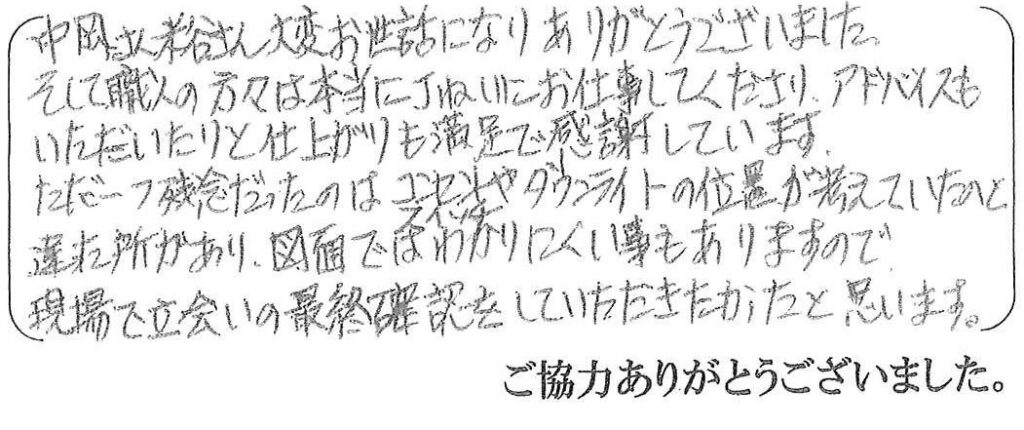 中岡さん米谷さん、大変お世話になりありがとうございました。
そして職人の方々は本当に丁ねいにお仕事してくださり、アドバイスも
いただいたりと仕上がりも満足で感謝しています。
ただ一つ残念だったのはコンセントやダウンライトの位置が考えていたのと
スイッチ
違った所があり、図面ではわかりにくい事もありますので、
現場で立会いの最終確認をしていただきたかったと思います。
ご協力ありがとうございました。